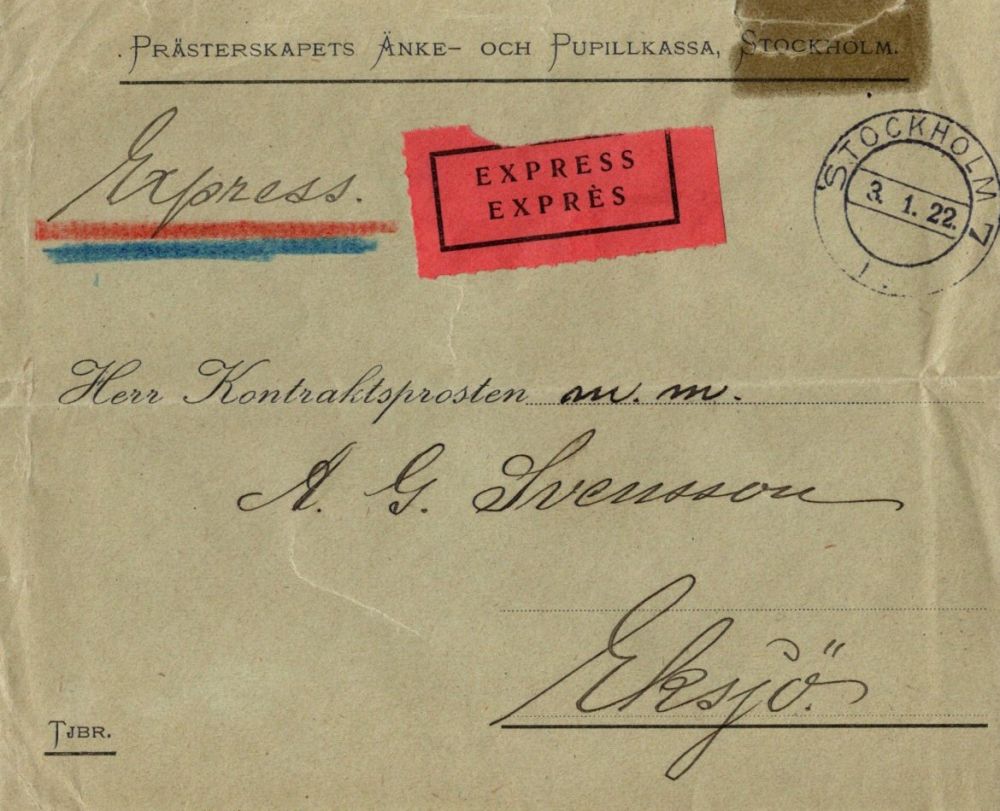 PRÄSTERSKAPETS ÄNKE- OCH PUPILLKASSA, STOCKHOLM.
Express.
EXPRESS
EXPRÈS
STOCKHOLM 7
3. 1. 22.
1.
Herr Kontraktsprosten m. m.
A. G. Svensson
Eksjö.
TJBR.